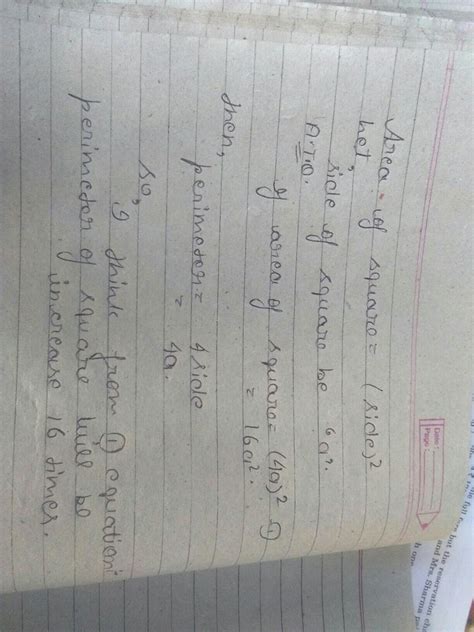 Date :
Page :
Area of square = (side)²
let,
side of square be "a".
A.T.Q.
If area of square = (4a)² ①
= 16a².
then,
perimeter = 4 side
= 4a.
so, I think from ① equation
perimeter of square will be
increase 16 times.
but the reservation
and Mrs. Sharma